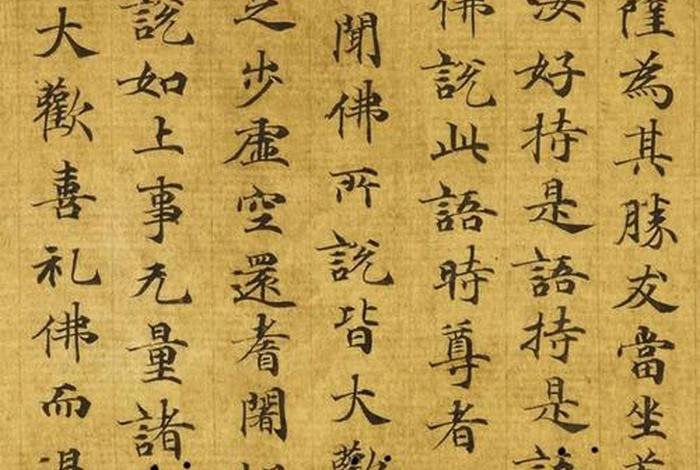 薩為其勝友當坐
汝好持是語持是語
佛說此語時尊者
聞佛所說皆大歡
之步虛空還耆闍
說如上事无量諸
大歡喜礼佛而退